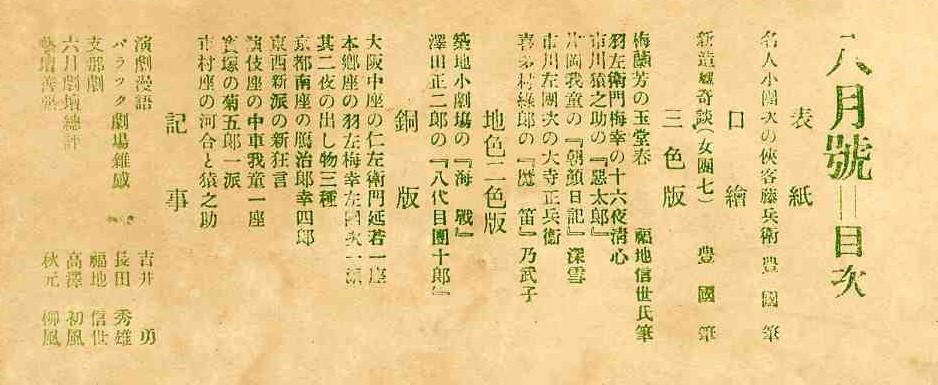 八月號＝目次
表紙
名人小團次の俠客藤兵衛 豊國筆
口繪
新造奇談(女團七) 豊國筆
三色版
梅蘭芳の玉堂春 福地信世氏筆
羽左衛門梅幸の十六夜清心
市川猿之助の『惡太郎』
片岡我童の『朝顔日記』深雪
市川左團次の大寺正兵衛
喜多村綠郎の『魔笛』乃武子
地色二色版
築地小劇場の『海戰』
澤田正二郎の『八代目團十郎』
銅版
大阪中座の仁左衛門延若一座
本鄉座の羽左梅幸左團次一派
其二夜の出し物三種
京都南座の鴈治郎幸四郎
東西新派の新狂言
演伎座の中車我童一座
寶塚の菊五郎一派
市村座の河合と猿之助
記事
演劇漫語 吉井勇
バラック劇場雜感 長田秀雄
支那劇 福地信世
六月劇壇總評 高澤初風
秋元柳風